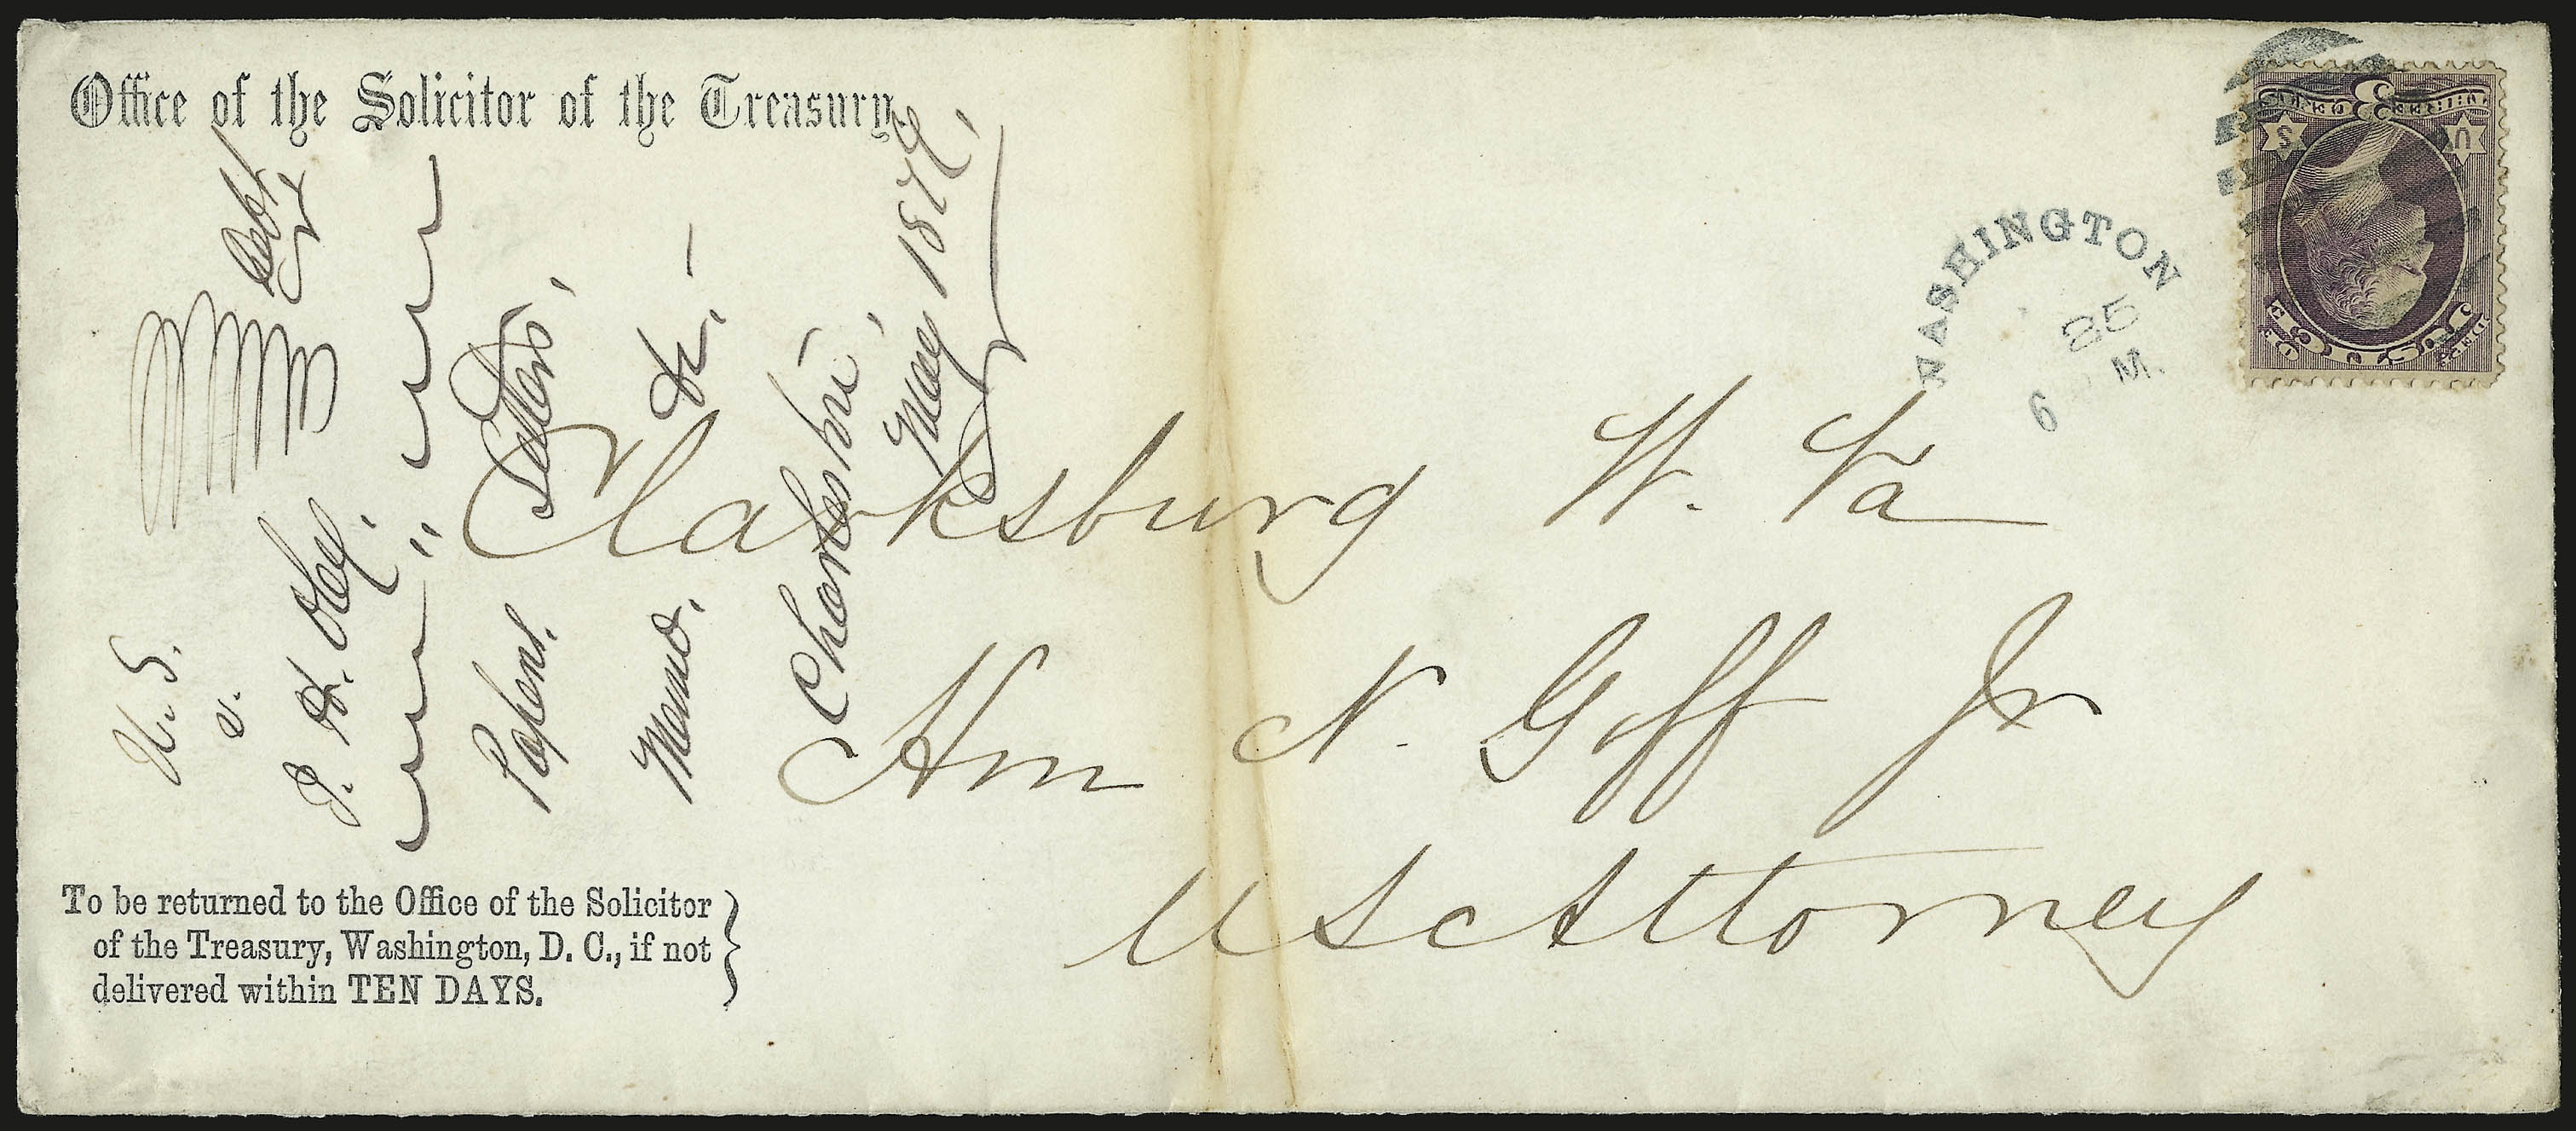 Office of the Solicitor of the Treasury.
WASHINGTON
25
6 M.
3
U S
JUSTICE
Clarksburg W. Va
Hon N. Goff Jr
U S Attorney
U. S.
v.
Debt
J. H.
Papers. Letters,
Memo. &c. —
May 187
To be returned to the Office of the Solicitor
of the Treasury, Washington, D. C., if not
delivered within TEN DAYS.